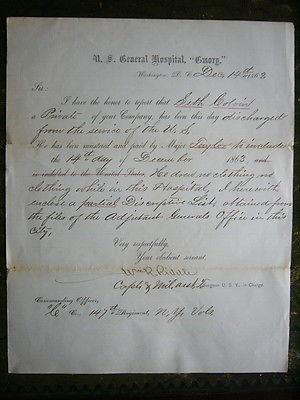 U. S. General Hospital, "Emory,"
Washington, D. C. Dec 14th 1863
Sir:
I have the honor to report that Seth
a Private of your Company, has been this day discharged
from the service of the U.S.
He has been mustered and paid by Major Taylor to include
the 14th day of December 1863. and
is indebted to the United States He does no clothing no
clothing while in this Hospital, I herewith
enclose a partial Discriptive List, obtained from
the files of the Adjutant Generals Office in this
City,
Very respectfully,
Your obedient servant,
Wm P.
Capt & Surgeon U. S. V., in Charge.
Commanding Officer,
Co. 147th Regiment, N.Y. Vols